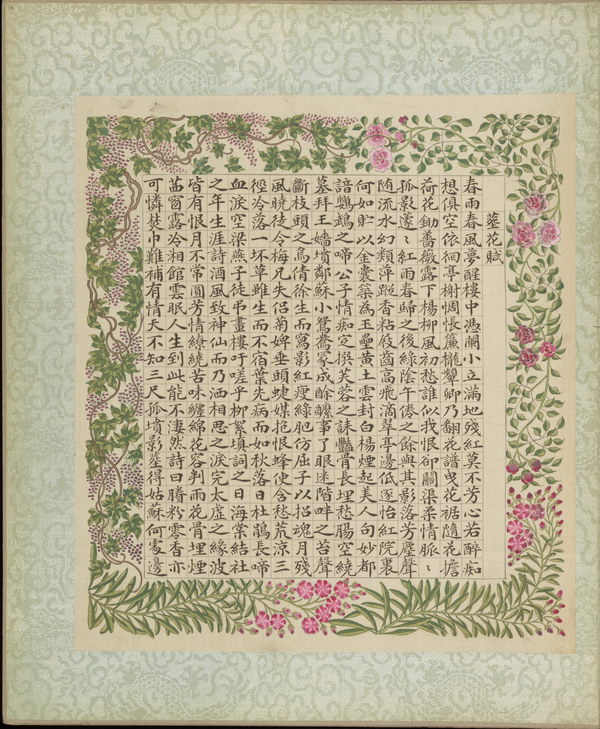 葬花賦
春雨春風夢醒樓中憑闌小立滿地殘紅莫不芳心若醉痴
想俱空依徊亭榭惆悵簾櫳顰卿乃翻花譜曳花裾隨花擔
荷花鋤薔薇露下楊柳風初愁誰似我恨卻關渠柔情脈〻
孤影蘧〻紅雨春歸之後綠陰午倦之餘與其影落芳塵聲
隨流水幻類萍蹤香粘屐齒高飛滴翠亭邊低逐怡紅院裏
何如貯以金囊築為玉壘黃土雲封白楊煙起美人句妙都
諳鸚鵡之啼公子情痴定撰芙蓉之誄豔骨長埋愁腸空繞
墓拜王嬙墳鄰蘇小鴛鴦冢成酴醾事了眼迷階畔之苔聲
斷枝頭之鳥倩徐生而寫影紅瘦綠肥仿屈子以招魂月殘
風曉徒令梅兄失侶菊婢垂頭蜨媒抱恨蜂使含愁荒涼三
徑冷落一坏草雖生而不宿葉先病而如秋落日杜鵑長啼
血淚空梁燕子徒弔畫樓吁嗟乎柳絮填詞之日海棠結社
之年生涯詩酒風致神仙而乃洒相思之淚完太虛之緣波
皆有恨月不常圓芳情繚繞苦味纏綿花容判雨花骨埋煙
茜窗露冷湘館雲眠人生到此能不淒然詩曰賸粉零香亦
可憐焚巾難補有情天不知三尺孤墳影葬得姑蘇何處邊